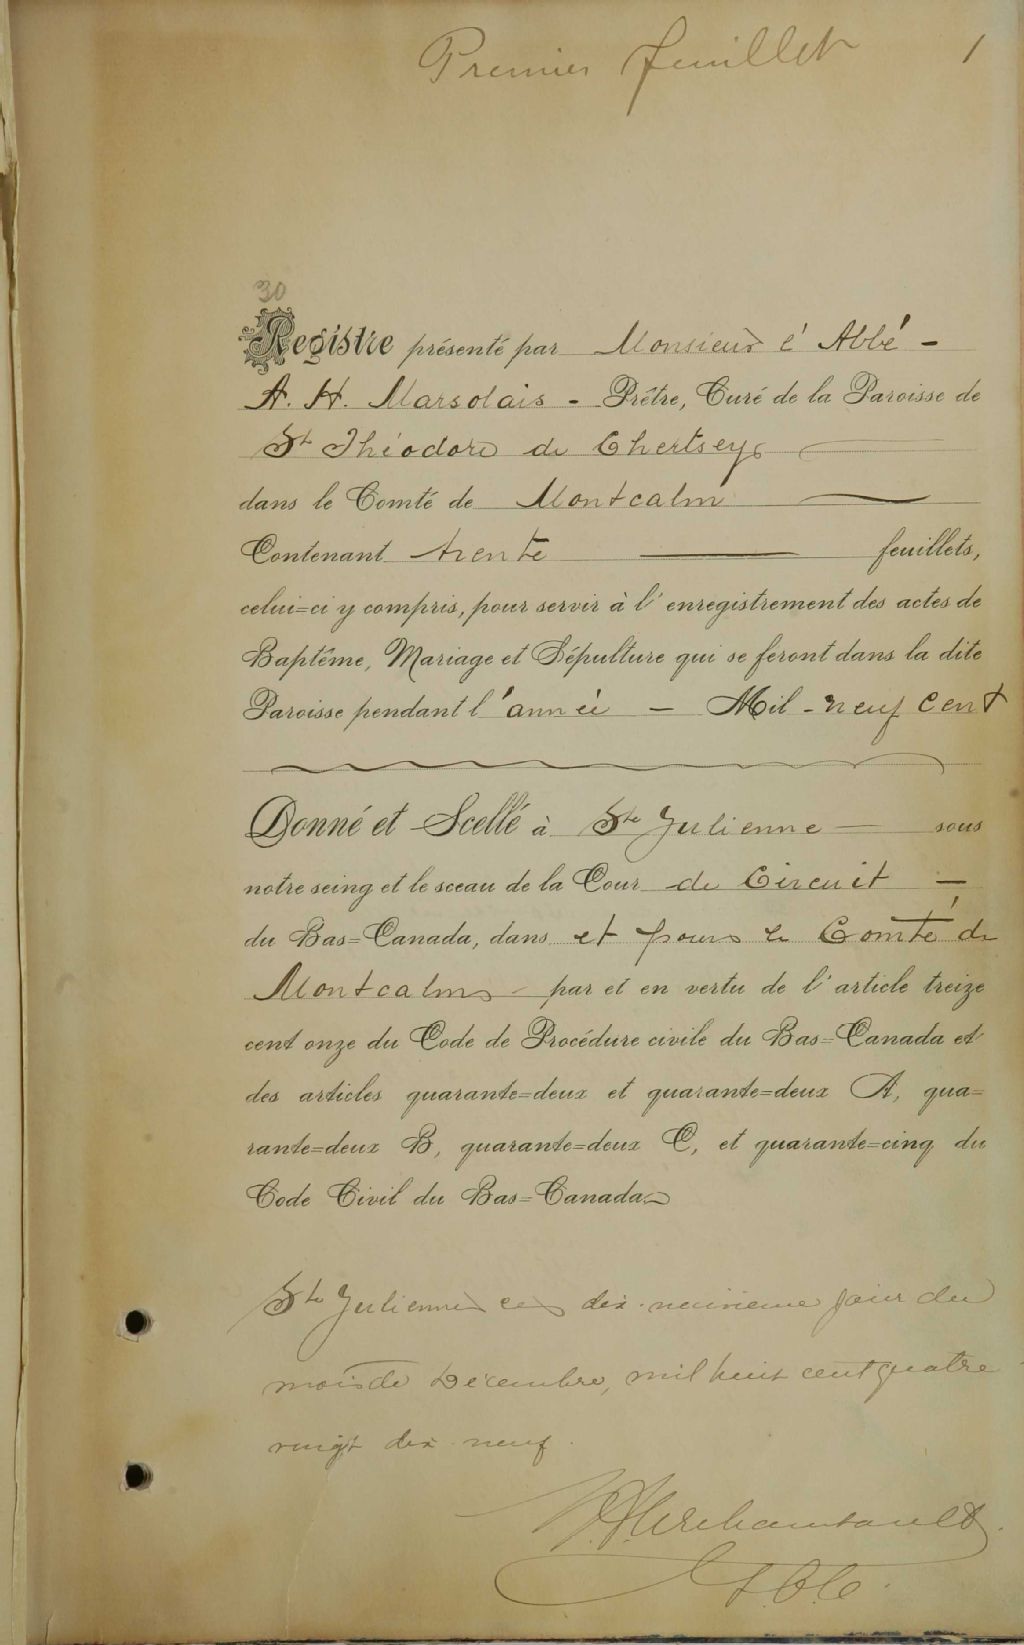 Premier feuillet 1
30
Registre présenté par Monsieur l'Abbé -
A. H. Marsolais - Prêtre, Curé de la Paroisse de
St Théodore de Chertsey
dans le Comté de Montcalm
Contenant trente feuillets,
celui=ci y compris, pour servir à l'enregistrement des actes de
Baptême, Mariage et Sépulture qui se feront dans la dite
Paroisse pendant l'année - Mil - neuf cent
Donné et Scellé à Ste Julienne sous
notre seing et le sceau de la Cour de Circuit -
du Bas=Canada, dans et pour le Comté de
Montcalm par et en vertu de l'article treize
cent onze du Code de Procédure civile du Bas=Canada et
des articles quarante=deux et quarante=deux A, qua=
rante=deux B, quarante=deux C, et quarante=cinq du
Code Civil du Bas=Canada
Ste Julienne ce dix-neuvieme jour du
mois de Décembre, mil huit cent quatre
vingt dix-neuf.